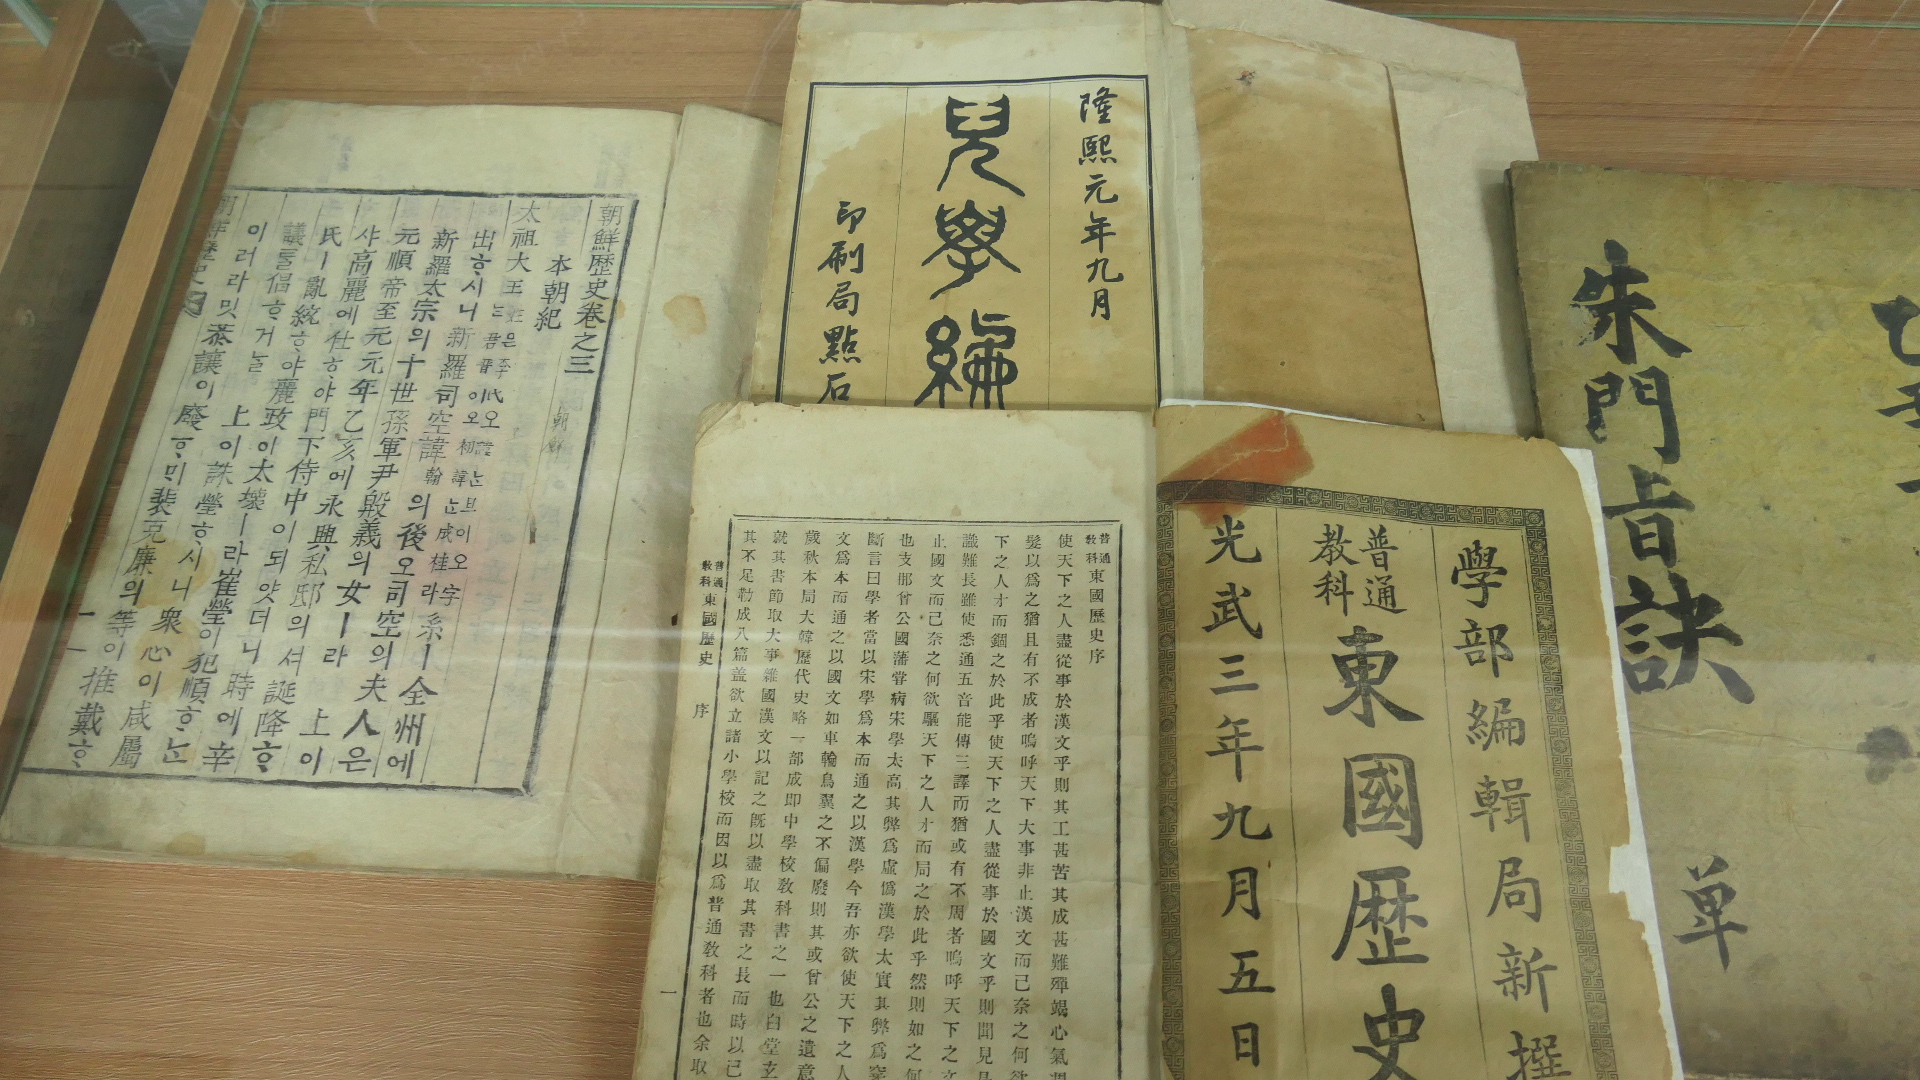 朝鮮歷史卷之三
本朝紀
太祖大王姓은李氏오諱는旦이오字는君晉이오初諱는成桂라系ㅣ全州에
出ᄒᆞ시니新羅司空諱翰의後오司空의夫人은
新羅太宗의十世孫軍尹殷義의女ㅣ라 上이
元順帝至元元年乙亥에永興私邸의셔誕降ᄒᆞ
샤高麗에仕ᄒᆞ야門下侍中이되얏더니時에辛
氏ㅣ亂統ᄒᆞ야麗政이太壞ㅣ라崔瑩이犯順ᄒᆞᄂᆞᆫ
議를倡ᄒᆞ거ᄂᆞᆯ 上이誅瑩ᄒᆞ시니衆心이咸屬
이러라밋恭讓이廢ᄒᆞᄆᆡ裴克廉의等이推戴ᄒᆞ
隆熙元年九月
兒學編
印刷局點石
普通敎科東國歷史序
使天下之人盡從事於漢文乎則其工甚苦其成甚難殫竭心氣
髮以爲之猶且有不成者嗚呼天下大事非止漢文而已奈之何欲
下之人才而錮之於此乎使天下之人盡從事於國文乎則聞見
識難長雖使悉通五音能傳三譯而猶或有不周者嗚呼天下之文
止國文而已奈之何欲驅天下之人才而局之於此乎然則如之何
也支那曾公國藩嘗病宋學太高其弊爲虛僞漢學太實其弊爲窒
斷言曰學者當以宋學爲本而通之以漢學今吾亦欲使天下之人
文爲本而通之以國文如車輪鳥翼之不偏廢則其或曾公之遺意
歲秋本局大韓歷代史略一部成卽中學校敎科書之一也白堂玄
就其書節取大事雜國漢文以記之旣以盡取其書之長而時以己
其不足勒成八篇蓋欲立諸小學校而因以爲普通敎科者也余取
普通敎科東國歷史 序 一
學部編輯局新撰
普通敎科東國歷史
光武三年九月五日
朱門旨訣
單